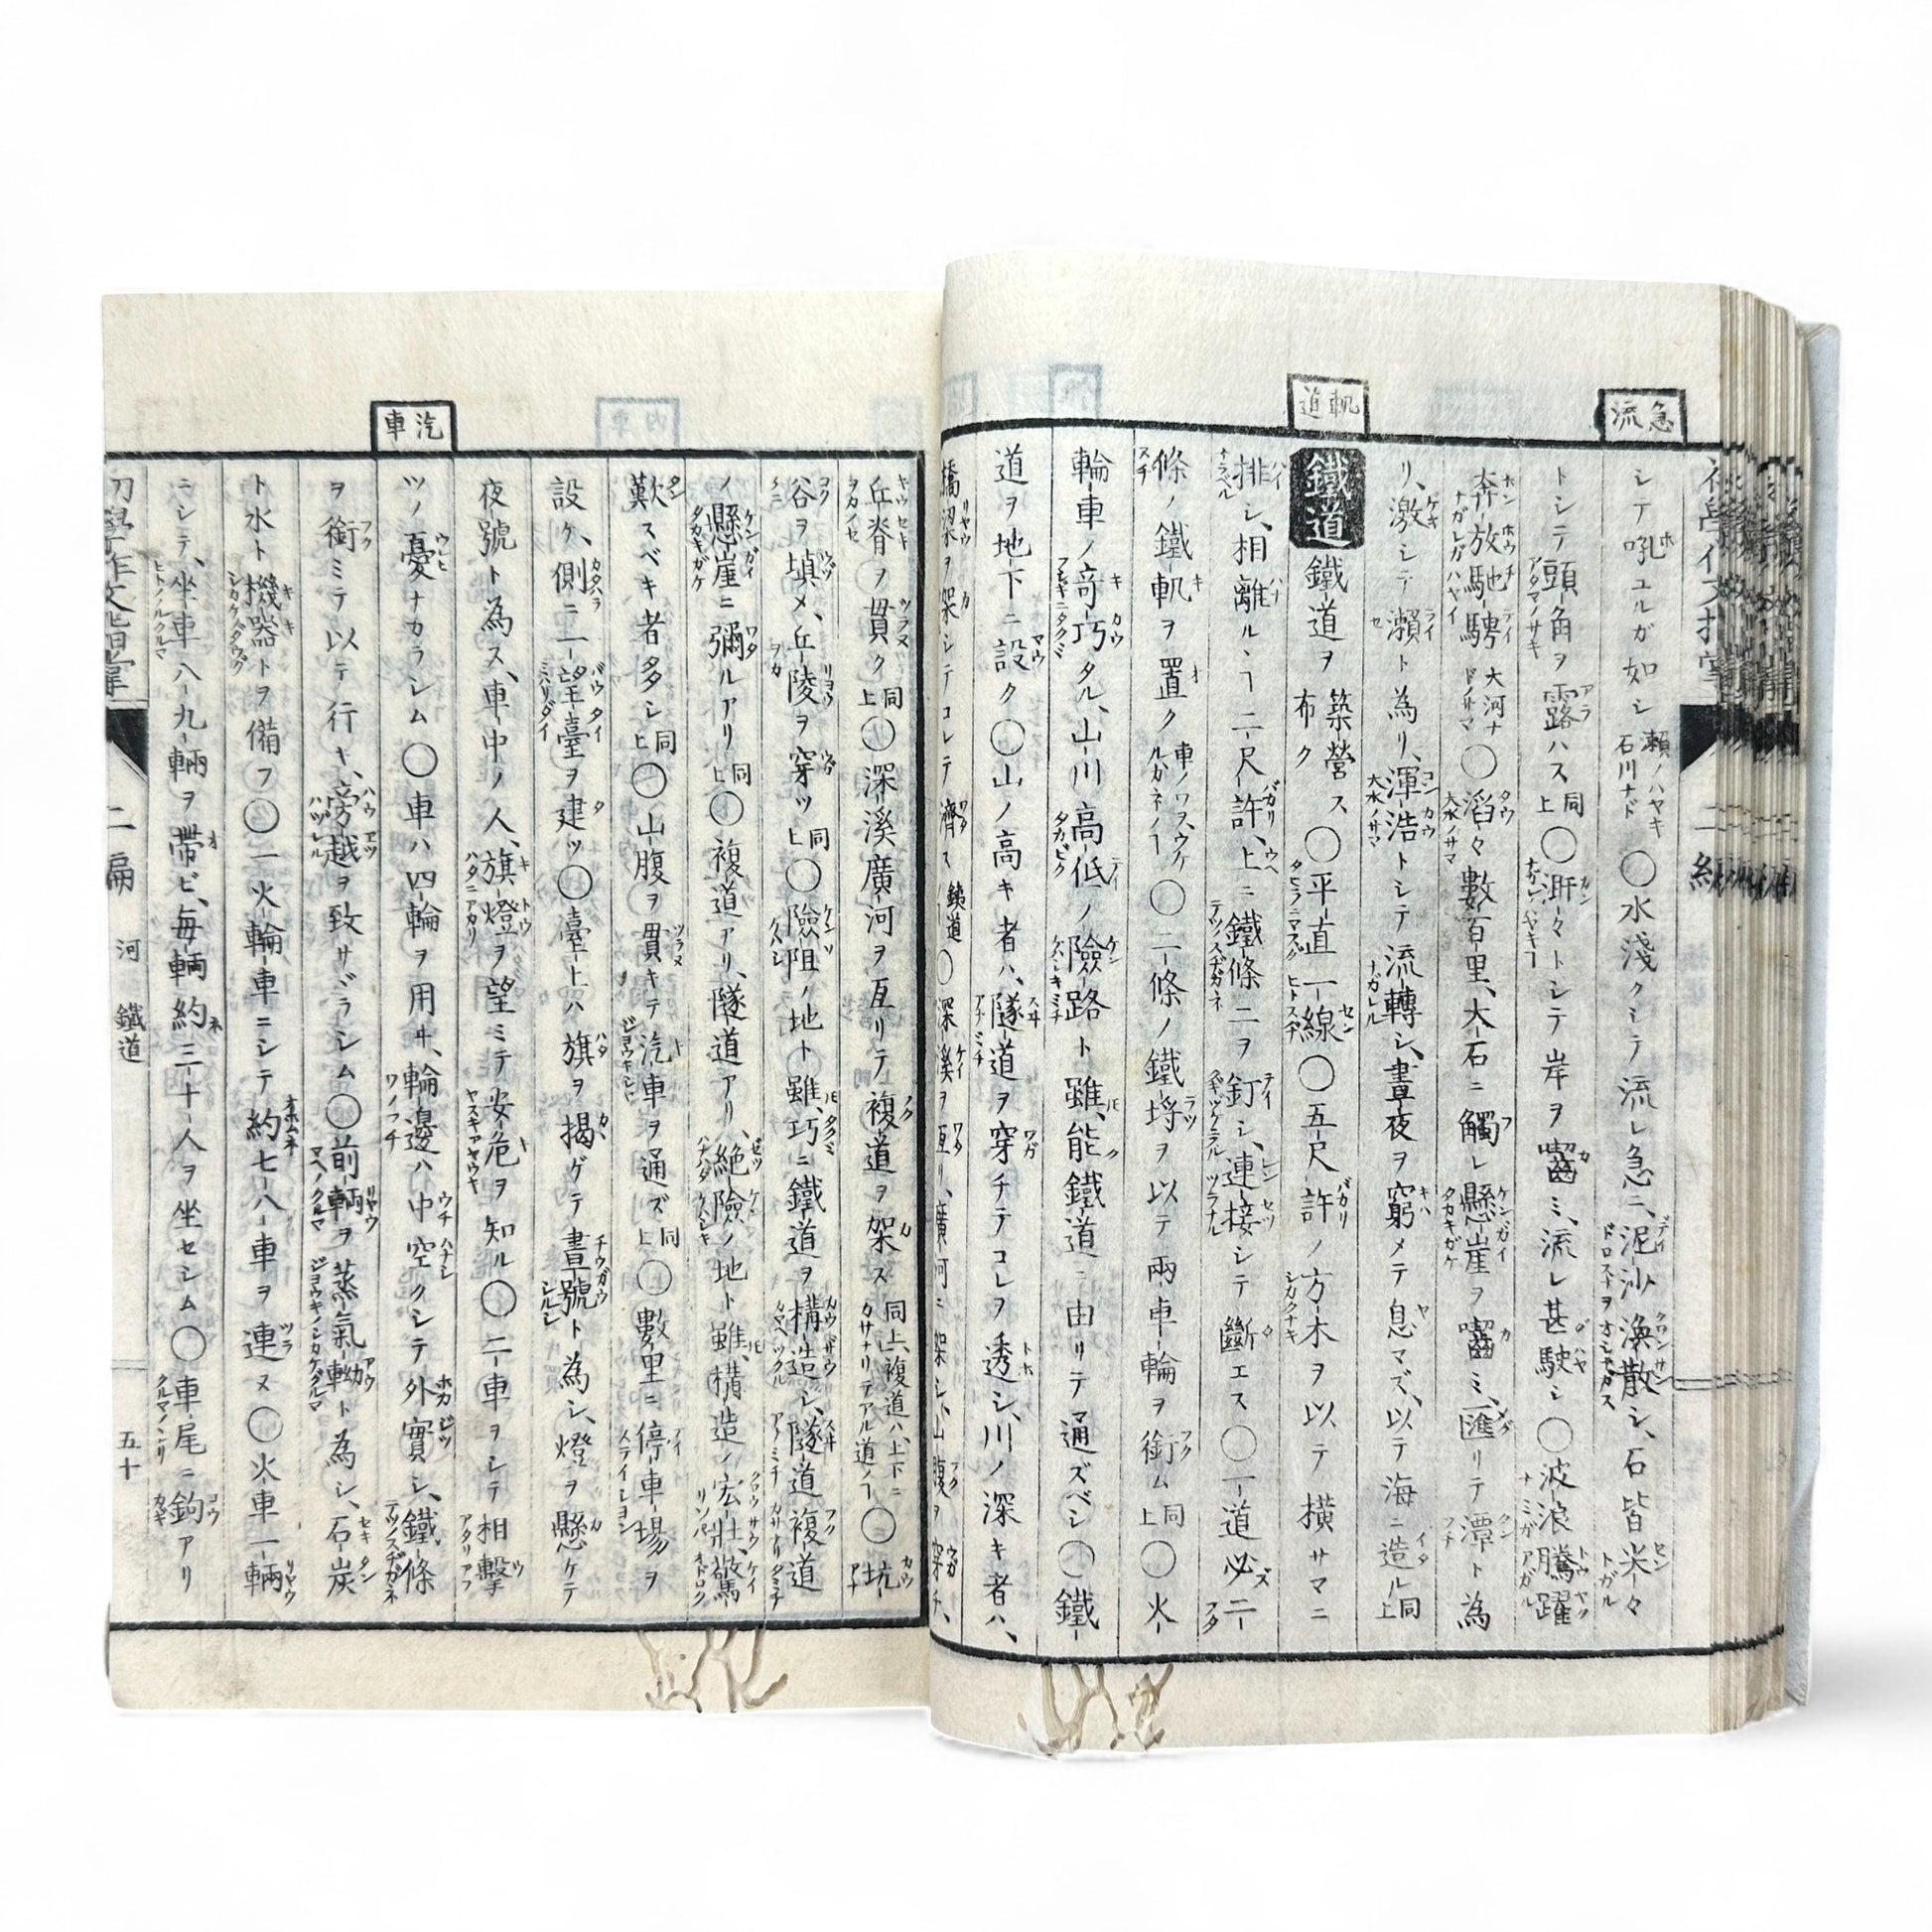 急流
シテ吼ユルガ如シ 瀬ノハヤキ石川ナド 〇水淺クシテ流レ急ニ、泥沙渙散シ、石皆尖々
トシテ頭角ヲ露ハス 同上 〇澣々トシテ岸ヲ嚙ミ、流レ甚駛シ〇波浪騰躍
奔放馳騁 大河ナドノサマ 〇滔々數百里、大石ニ觸レ懸崖ヲ嚙ミ、匯リテ潭ト為
リ、激シテ瀬ト為リ、渾浩トシテ流轉シ、晝夜ヲ窮メテ息マズ、以テ海ニ造ル 同上
軌道
鐵道 鐵道ヲ 築營ス 布ク 〇平直一線〇五尺許ノ方木ヲ以テ横サマニ
排シ、相離ルヿ二尺許、上ニ鐵條二ヲ釘シ、連接シテ斷エス〇一道必二
條ノ鐵軌ヲ置ク 車ノワヲ、ウケルカネノヿ 〇二條ノ鐵埒ヲ以テ兩車輪ヲ銜ム 同上 〇火
輪車ノ奇巧タル、山川高低ノ險路ト雖、能鐵道ニ由リテ通ズベシ〇鐵
道ヲ地下ニ設ク〇山ノ高キ者ハ、隧道ヲ穿チテコレヲ透シ、川ノ深キ者ハ、
橋梁ヲ架シテコレテ濟ス 鐵道 〇深溪ヲ亙リ、廣河ニ架シ、山腹ヲ穿チ、
丘脊ヲ貫ク 同上 〇深溪廣河ヲ亙リテ複道ヲ架ス 同上、複道ハ、上下ニカサナリテアル道ノヿ 〇坑
谷ヲ塡メ、丘陵ヲ穿ツ 同上 〇險阻ノ地ト雖、巧ニ鐵道ヲ構造シ、隧道複道
ノ懸崖ニ彌ルアリ 同上 〇複道アリ、隧道アリ、絶險ノ地ト雖、構造ノ宏壯、驚
歎スベキ者多シ 同上 〇山腹ヲ貫キテ汽車ヲ通ズ 同上 〇數里ニ停車場ヲ
設ケ、側ニ一望臺ヲ建ツ〇臺上ハ旗ヲ揭ゲテ晝號ト為シ、燈ヲ懸ケテ
夜號ト為ス、車中ノ人、旗燈ヲ望ミテ安危ヲ知ル〇二車ヲシテ相擊
汽車
ツノ憂ナカラシム〇車ハ四輪ヲ用ヰ、輪邊ハ中空クシテ外實シ、鐵條
ヲ銜ミテ以テ行キ、旁越ヲ致サヾラシム〇前輌ヲ蒸氣軪ト為シ、石炭
ト水ト機器トヲ備フ〇一火輪車ニシテ約七八車ヲ連ヌ〇火車一輛
ニシテ、坐車八九輛ヲ帶ビ、毎輛約三十人ヲ坐セシム〇車尾ニ鉤アリ
二編 河 鐵道 五十